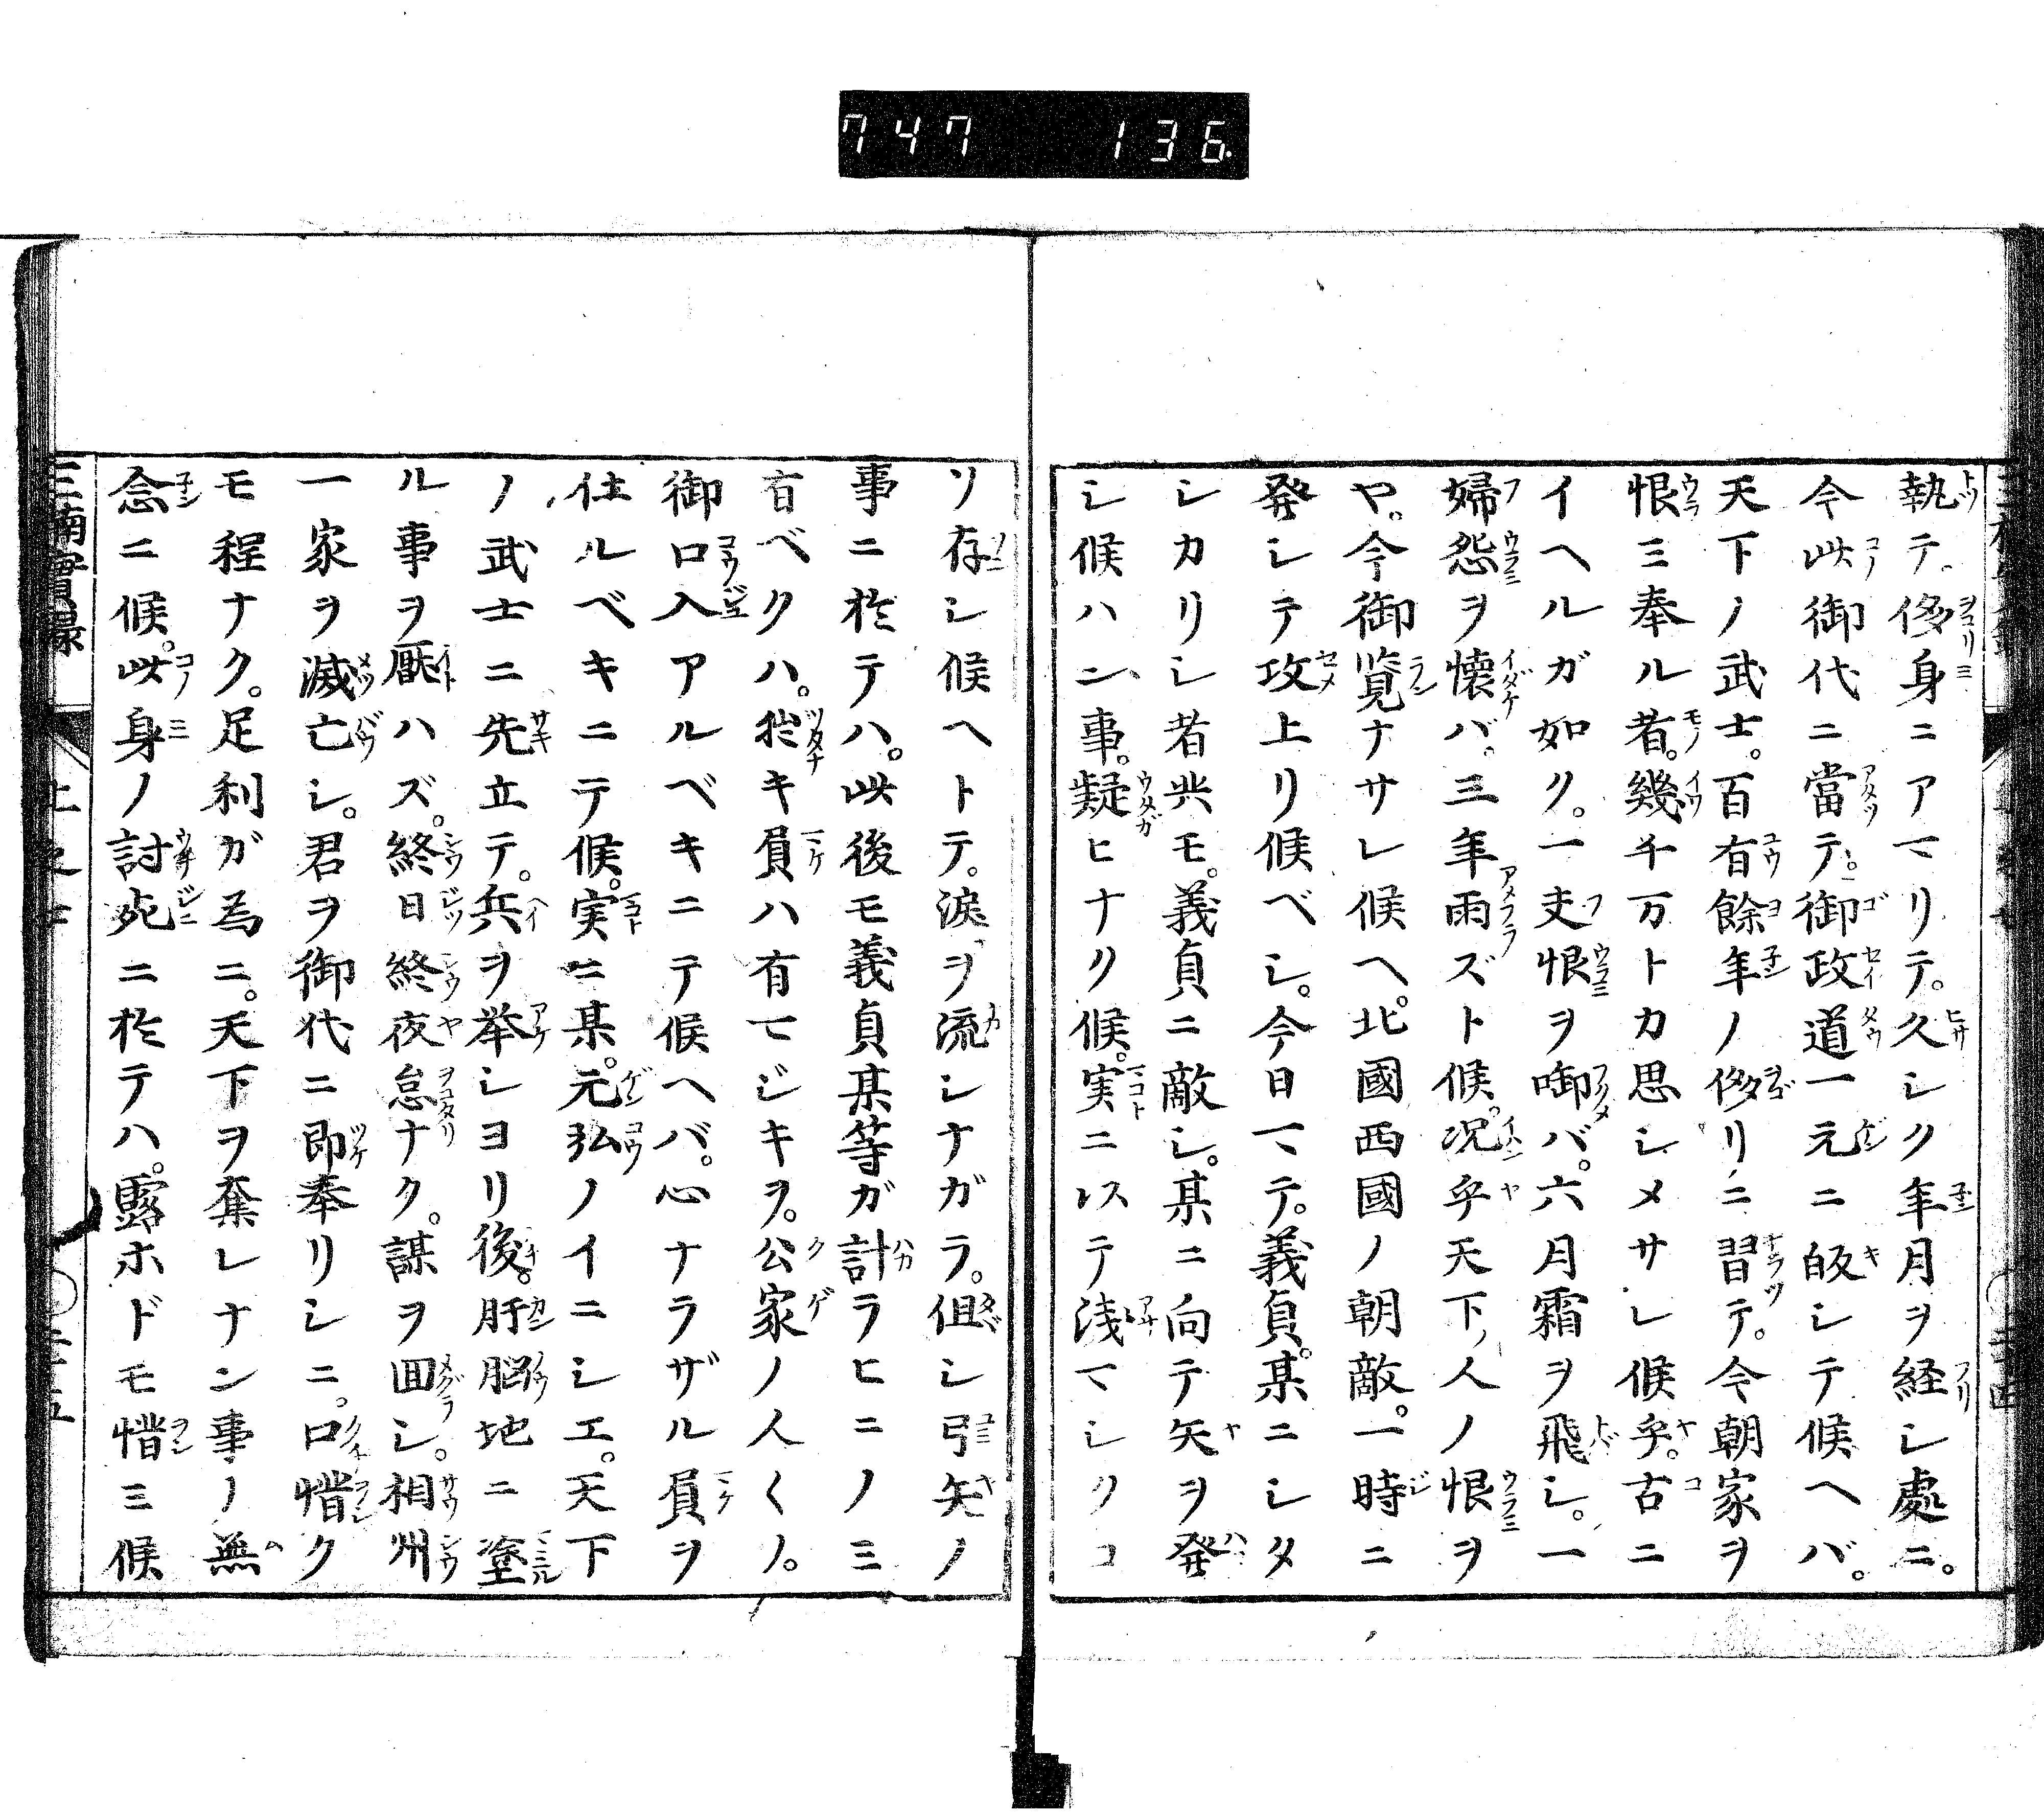 747 136
執テ侈身ニアマリテ。久シク年月ヲ経シ處ニ。
今此御代ニ當テ。御政道一元ニ皈シテ候ヘバ。
天下ノ武士。百有餘年ノ侈リニ習テ。今朝家ヲ
恨ミ奉ル者。幾千万トカ思シメサレ候乎。古ニ
イヘルガ如ク。一夫恨ヲ啣バ。六月霜ヲ飛シ。一
婦怨ヲ懐バ。三年雨ズト候。况乎天下ノ人ノ恨ヲ
ヤ。今御覧ナサレ候ヘ。北國西國ノ朝敵。一時ニ
発シテ攻上リ候ベシ。今日マテ。義貞。某ニシタ
シカリシ者共モ。義貞ニ敵シ。某ニ向テ矢ヲ發
シ候ハン事。疑ヒナク候。実ニ以テ浅マシクコ
ソ存シ候ヘトテ。涙ヲ流シナガラ。但シ弓矢ノ
事ニ於テハ。此後モ義貞某等ガ計ラヒニノミ
有ベクハ。拙キ負ハ有マジキヲ。公家ノ人〱ノ。
御口入アルベキニテ候ヘバ。心ナラザル負ヲ
仕ルベキニテ候。実ニ某。元弘ノイニシエ。天下
ノ武士ニ先立テ。兵ヲ挙シヨリ後。肝脳地ニ塗
ル事ヲ厭ハズ。終日終夜怠ナク。謀ヲ囬シ。相州
一家ヲ滅亡シ。君ヲ御代ニ即奉リシニ。口惜ク
モ程ナク。足利ガ為ニ。天下ヲ奪レナン事ノ無
念ニ候。此身ノ討死ニ於テハ。露ホドモ惜ミ候
三楠實録 上之七 〇二十五